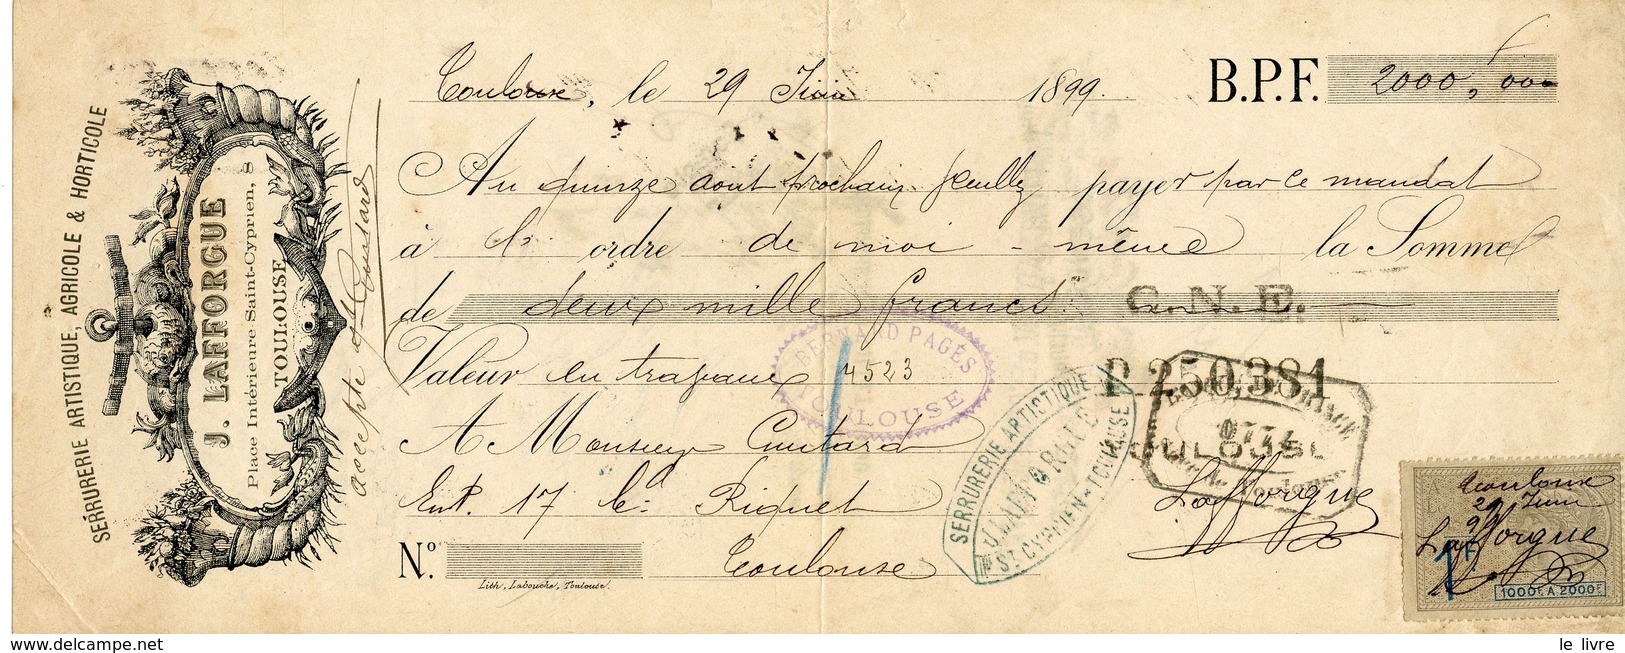 SERRURERIE ARTISTIQUE, AGRICOLE & HORTICOLE
J. LAFFORGUE
Place Intérieure Saint-Cyprien, 8
TOULOUSE
accepté
Toulouse, le 29 Juin 1899. B.P.F. 2000,F 00
Au quinze aout prochain Veuillez payer par ce mandat
à l' ordre de moi - même la Somme
de deux mille francs
C.N.E.
Valeur en travaux 4523
BERNARD PAGÈS
TOULOUSE
P 250,381
TOULOUSE
A Monsieur Coutard
Ent. 17 Bd Riquet
Toulouse
SERRURERIE ARTISTIQUE
J. LAFFORGUE
ST CYPRIEN - TOULOUSE
Lafforgue
No.
Lith, Labouche, Toulouse.
Toulouse
29 Juin
99
Lafforgue
1 F.
1000F A 2000F
le livre